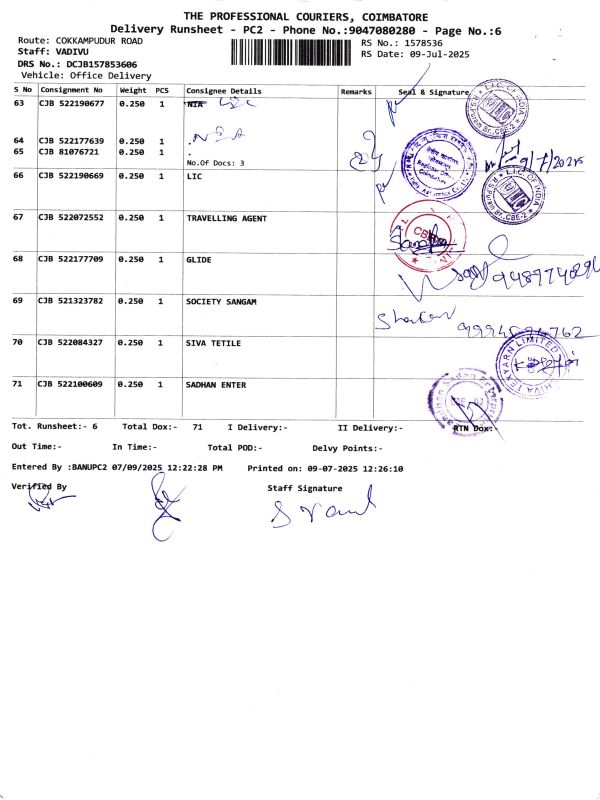 THE PROFESSIONAL COURIERS, COIMBATORE
Delivery Runsheet - PC2 - Phone No.:9047080280 - Page No.:6
Route: COKKAMPUDUR ROAD
Staff: VADIVU
DRS No.: DCJB157853606
Vehicle: Office Delivery
RS No.: 1578536
RS Date: 09-Jul-2025
S No Consignment No Weight PCS Consignee Details Remarks Seal & Signature
63 CJB 522190677 0.250 1 NIA LIC
64 CJB 522177639 0.250 1 . NIA
65 CJB 81076721 0.250 1 .
No.Of Docs: 3
9/7/2025
66 CJB 522190669 0.250 1 LIC
L.I.C. OF INDIA
67 CJB 522072552 0.250 1 TRAVELLING AGENT
68 CJB 522177709 0.250 1 GLIDE
69 CJB 521323782 0.250 1 SOCIETY SANGAM
70 CJB 522084327 0.250 1 SIVA TETILE
71 CJB 522100609 0.250 1 SADHAN ENTER
Tot. Runsheet:- 6 Total Dox:- 71 I Delivery:- II Delivery:- RTN Dox:-
Out Time:- In Time:- Total POD:- Delvy Points:-
Entered By :BANUPC2 07/09/2025 12:22:28 PM Printed on: 09-07-2025 12:26:10
Verified By Staff Signature